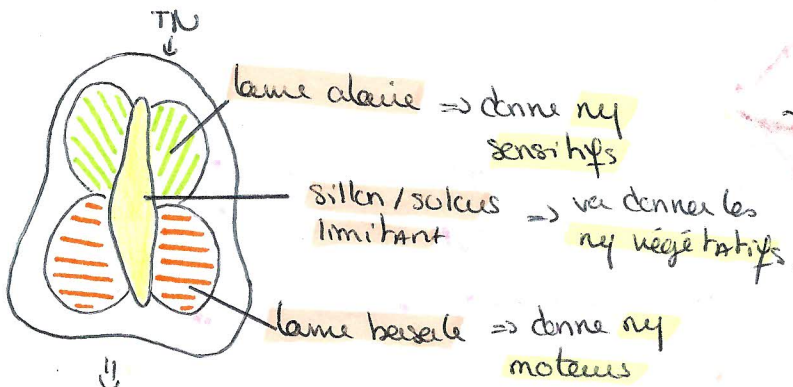 TN
lame alaire => donne ny
sensitifs
sillon / sulcus => va donner les
limitant ny végétatifs
lame basale => donne ny
moteurs